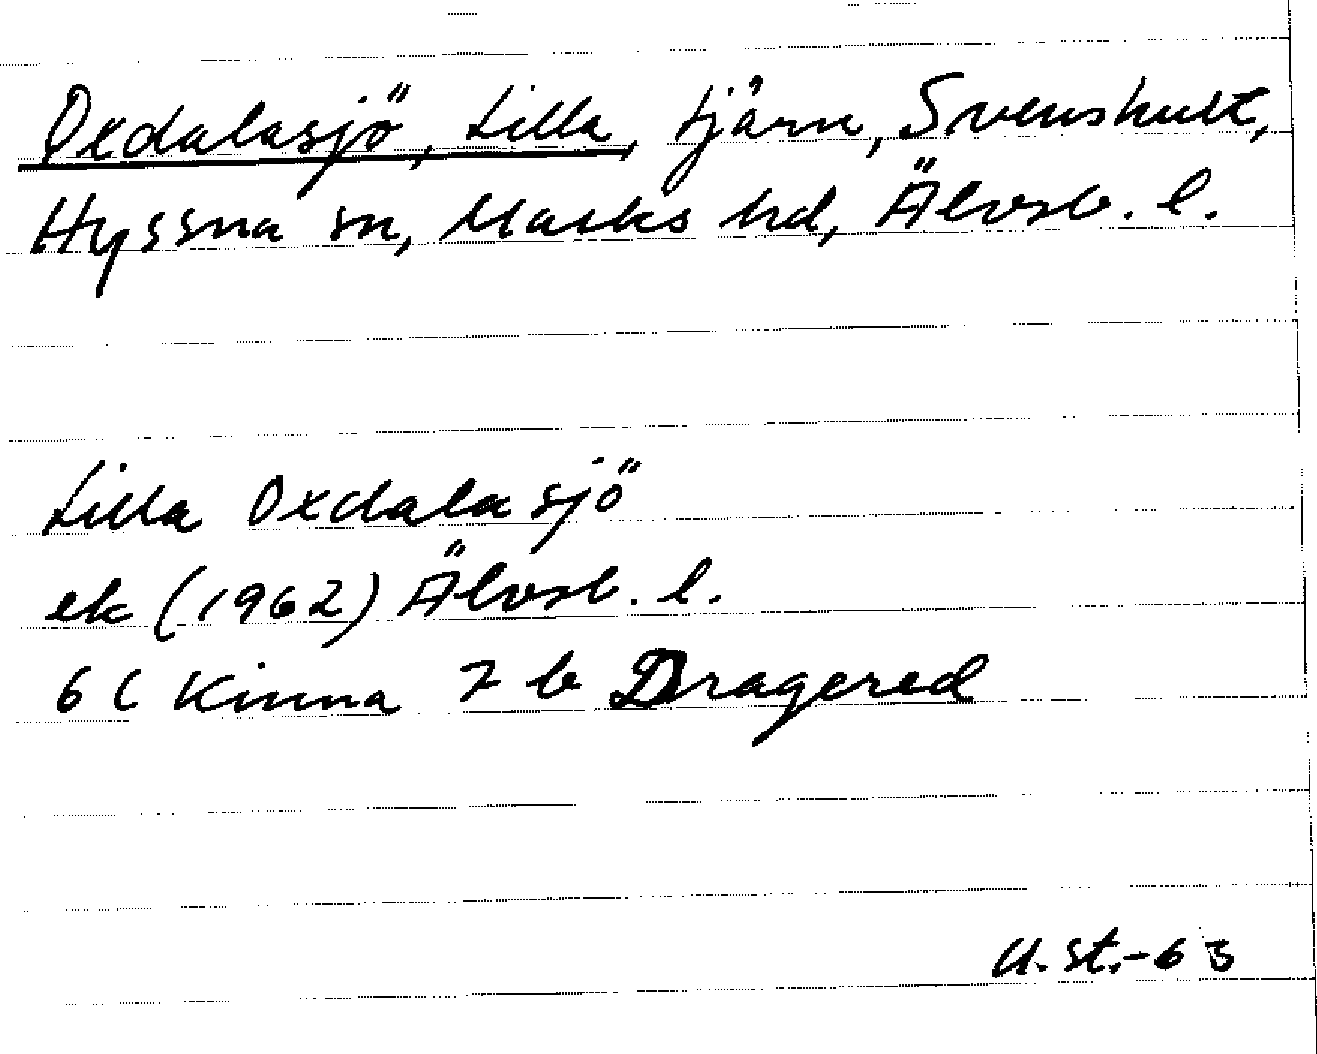 Oxdalasjö, Lilla, tjärn, Svenshult,
Hyssna sn, Marks hd, Älvsb. l.
Lilla Oxdalasjö
ek (1962) Älvsb. l.
6 C Kinna 7 b Dragered
U. St.-63